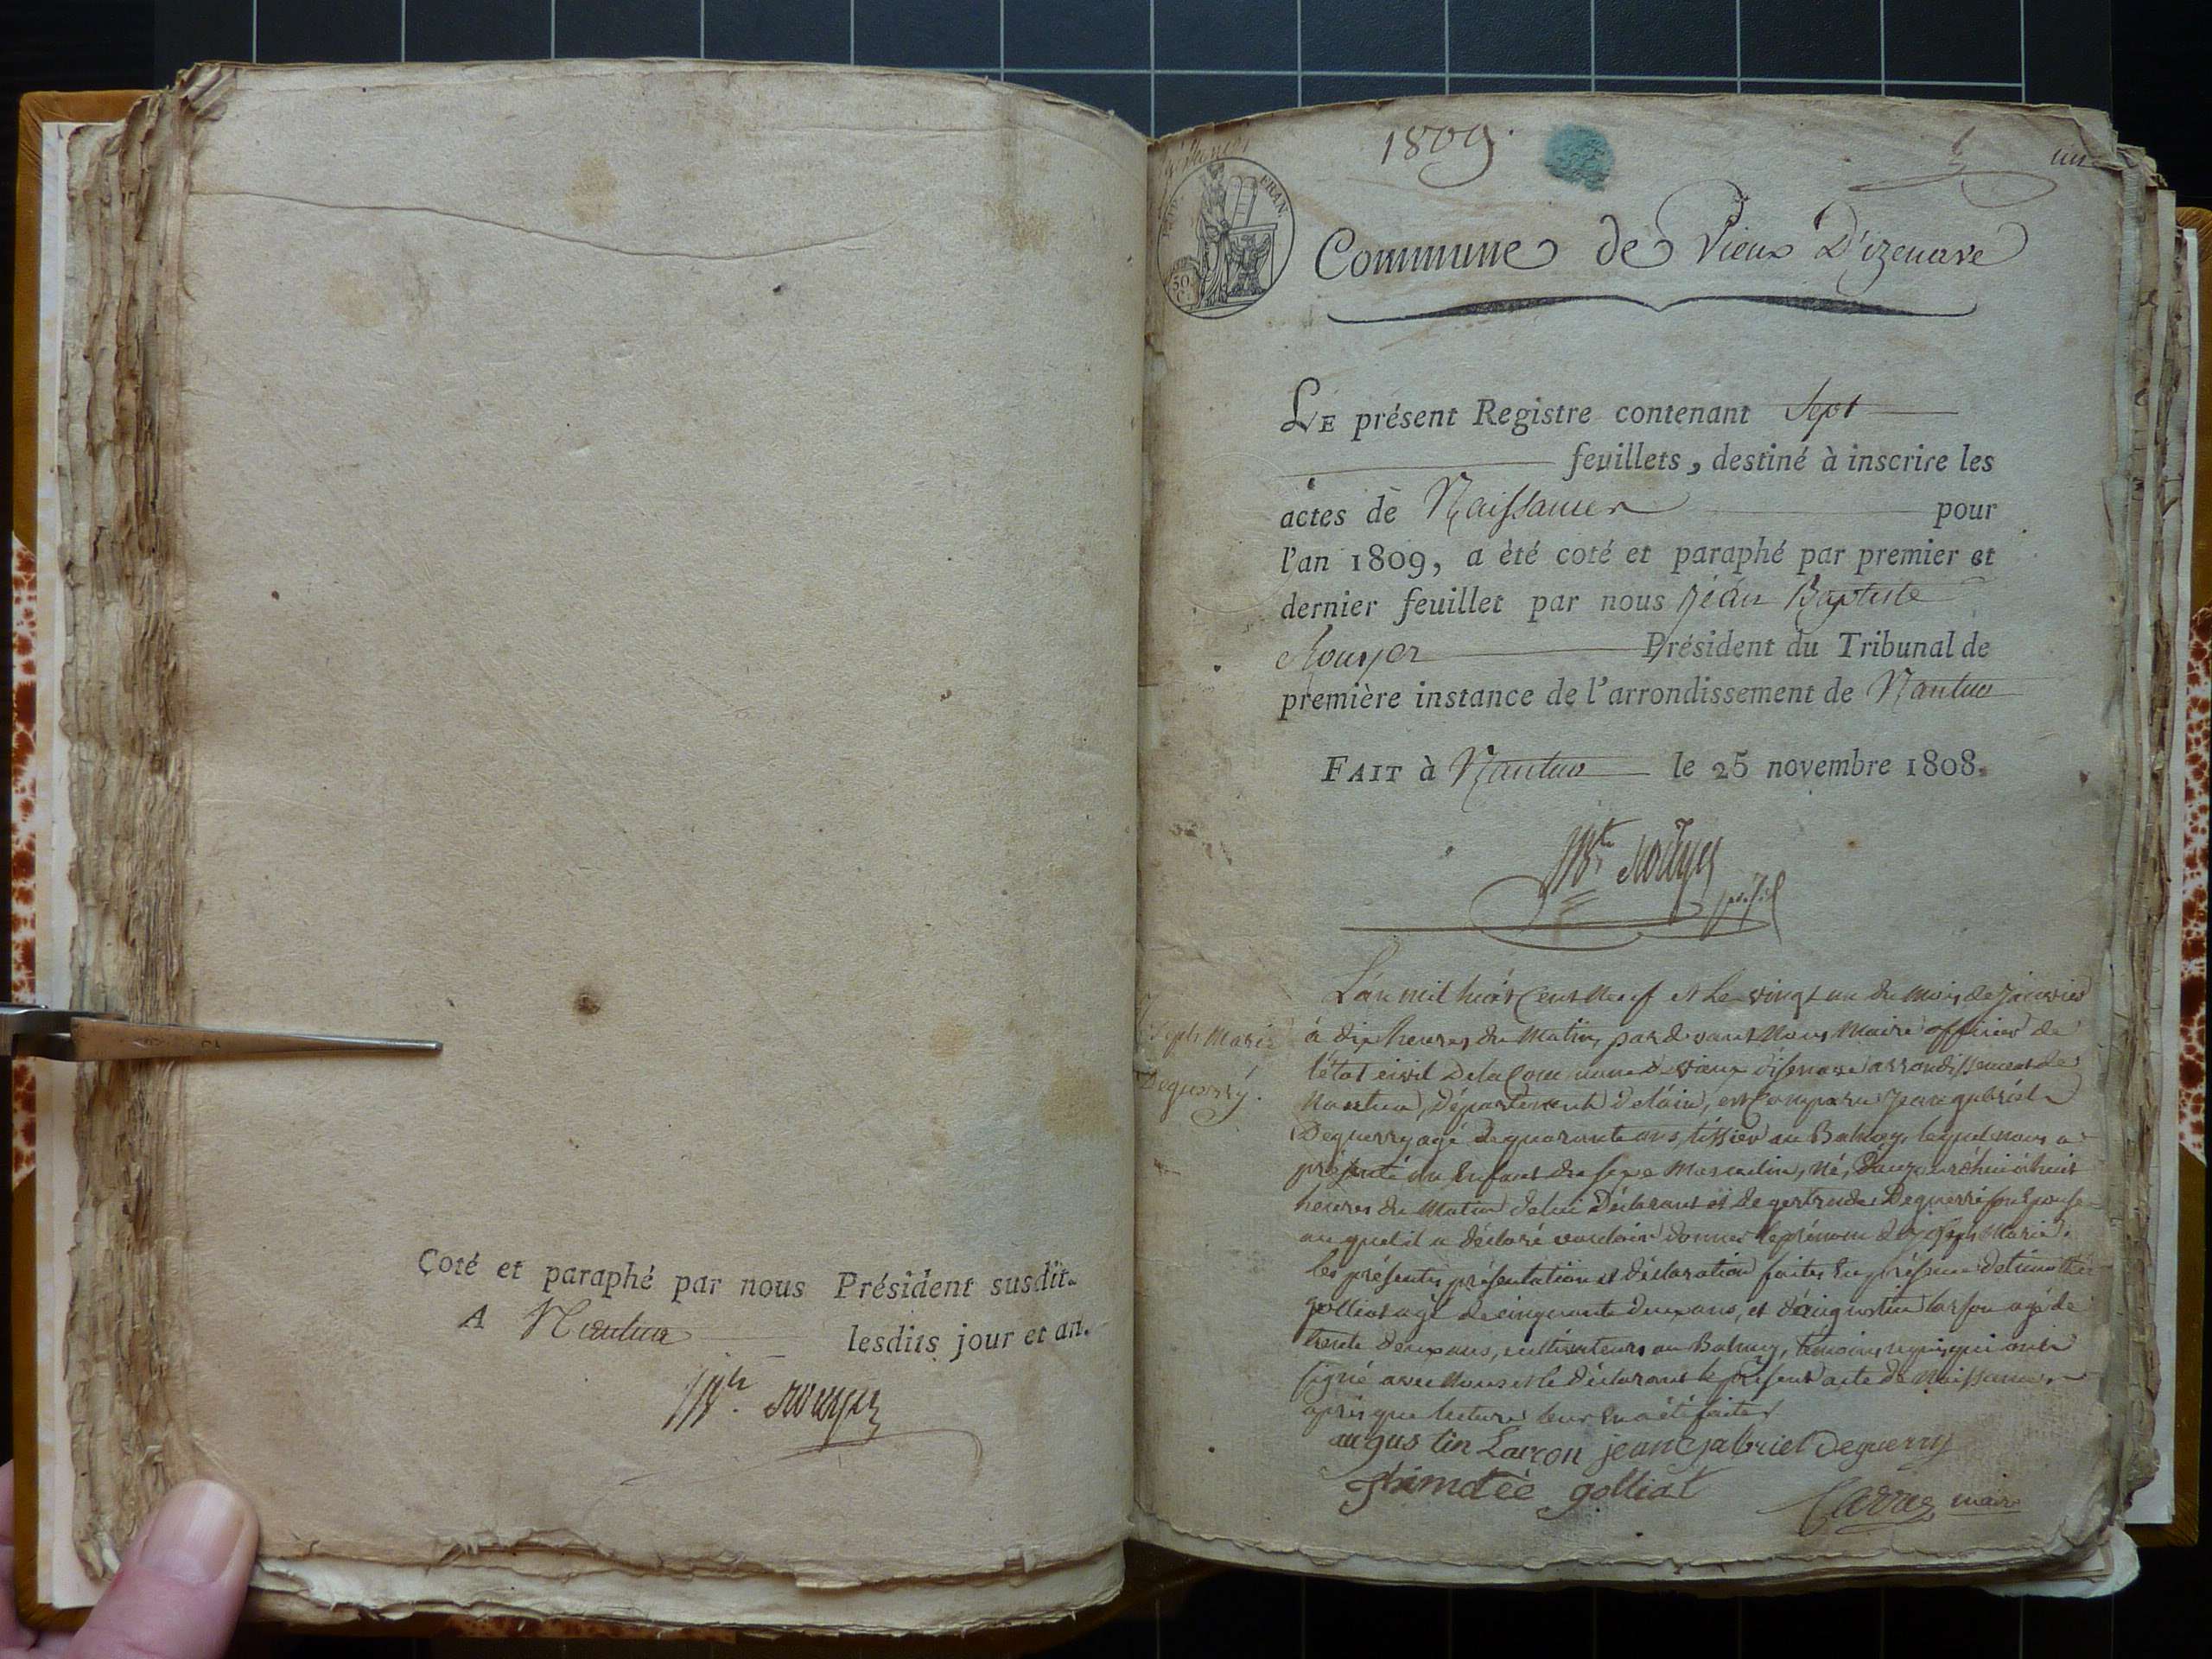 Coté et paraphé par nous Président susdit.
A Nantua lesdits jour et an.
JBte Rouyer
1809.
un
FRAN.
50
C.
Commune de Vieux D'izenave
LE présent Registre contenant Sept
feuillets, destiné à inscrire les
actes de Naissances pour
l'an 1809, a été coté et paraphé par premier et
dernier feuillet par nous Jean Baptiste
Rouyer Président du Tribunal de
première instance de l'arrondissement de Nantua
FAIT à Nantua le 25 novembre 1808.
JBte Rouyer
Joseph Marie
Deguerry.
L'an mil huit cent neuf et le vingt un du mois de janvier
à dix heures du matin, par devant nous Maire officier de
l'état civil de la commune de vieux disenave arrondissement de
Nantua, département de l'ain, est comparu jean gabriel
Deguerry agé de quarante ans, tissier au Balmay, lequel nous a
présenté un enfant du sexe Masculin, né, aujourd'hui à huit
heures du Matin de lui Déclarant et de gertrude Deguerri son epouse
auquel il a déclaré vouloir donner le prénom de joseph Marie.
les présentes présentation et déclaration faites en présence de timothé
golliat agé de cinquante deux ans, et d'augustin larson agé de
trente deux ans, cultivateurs au Balmay, témoins requis qui ont
signé avec nous et le déclarant le présent acte de Naissance,
après que lecture leur en a été faite
augustin Larçon jean Gabriel Deguerry
Thimotée golliat
Carrez maire